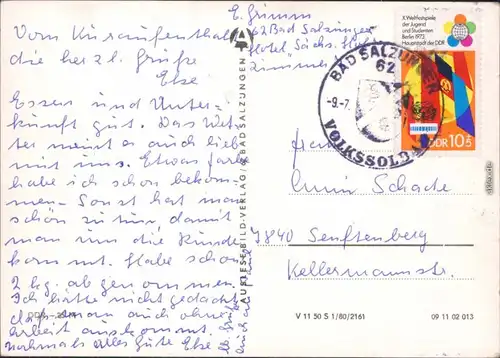 Vom Kuraufenthalt
die herzl. Grüße
Else
Essen und Unter-
kunft gut. Das Wet-
ter meint es auch lieb
mit uns. Etwas Farbe
habe ich schon bekom-
men. Sonst hat man
schön zu tun, damit
man um die Runde
kommt. Habe schon
2 kg. abgenommen.
Ich hätte nicht gedacht
daß man auch ohne
Arbeit auskommt.
nochmals Alles Gute Else
E. Grimm
62 Bad Salzungen
Hotel "Sächs.
Zimmer
AUSLESE-BILD-VERLAG · BAD SALZUNGEN
X. Weltfestspiele
der Jugend
und Studenten
Berlin 1973
Hauptstadt der DDR
DDR 10+5
BAD SALZUNGEN
62
-9.-7.
VOLKSSOLI
Schade
7840 Senftenberg
Kellermannstr.
V 11 50 S 1/80/2161
09 11 02 013